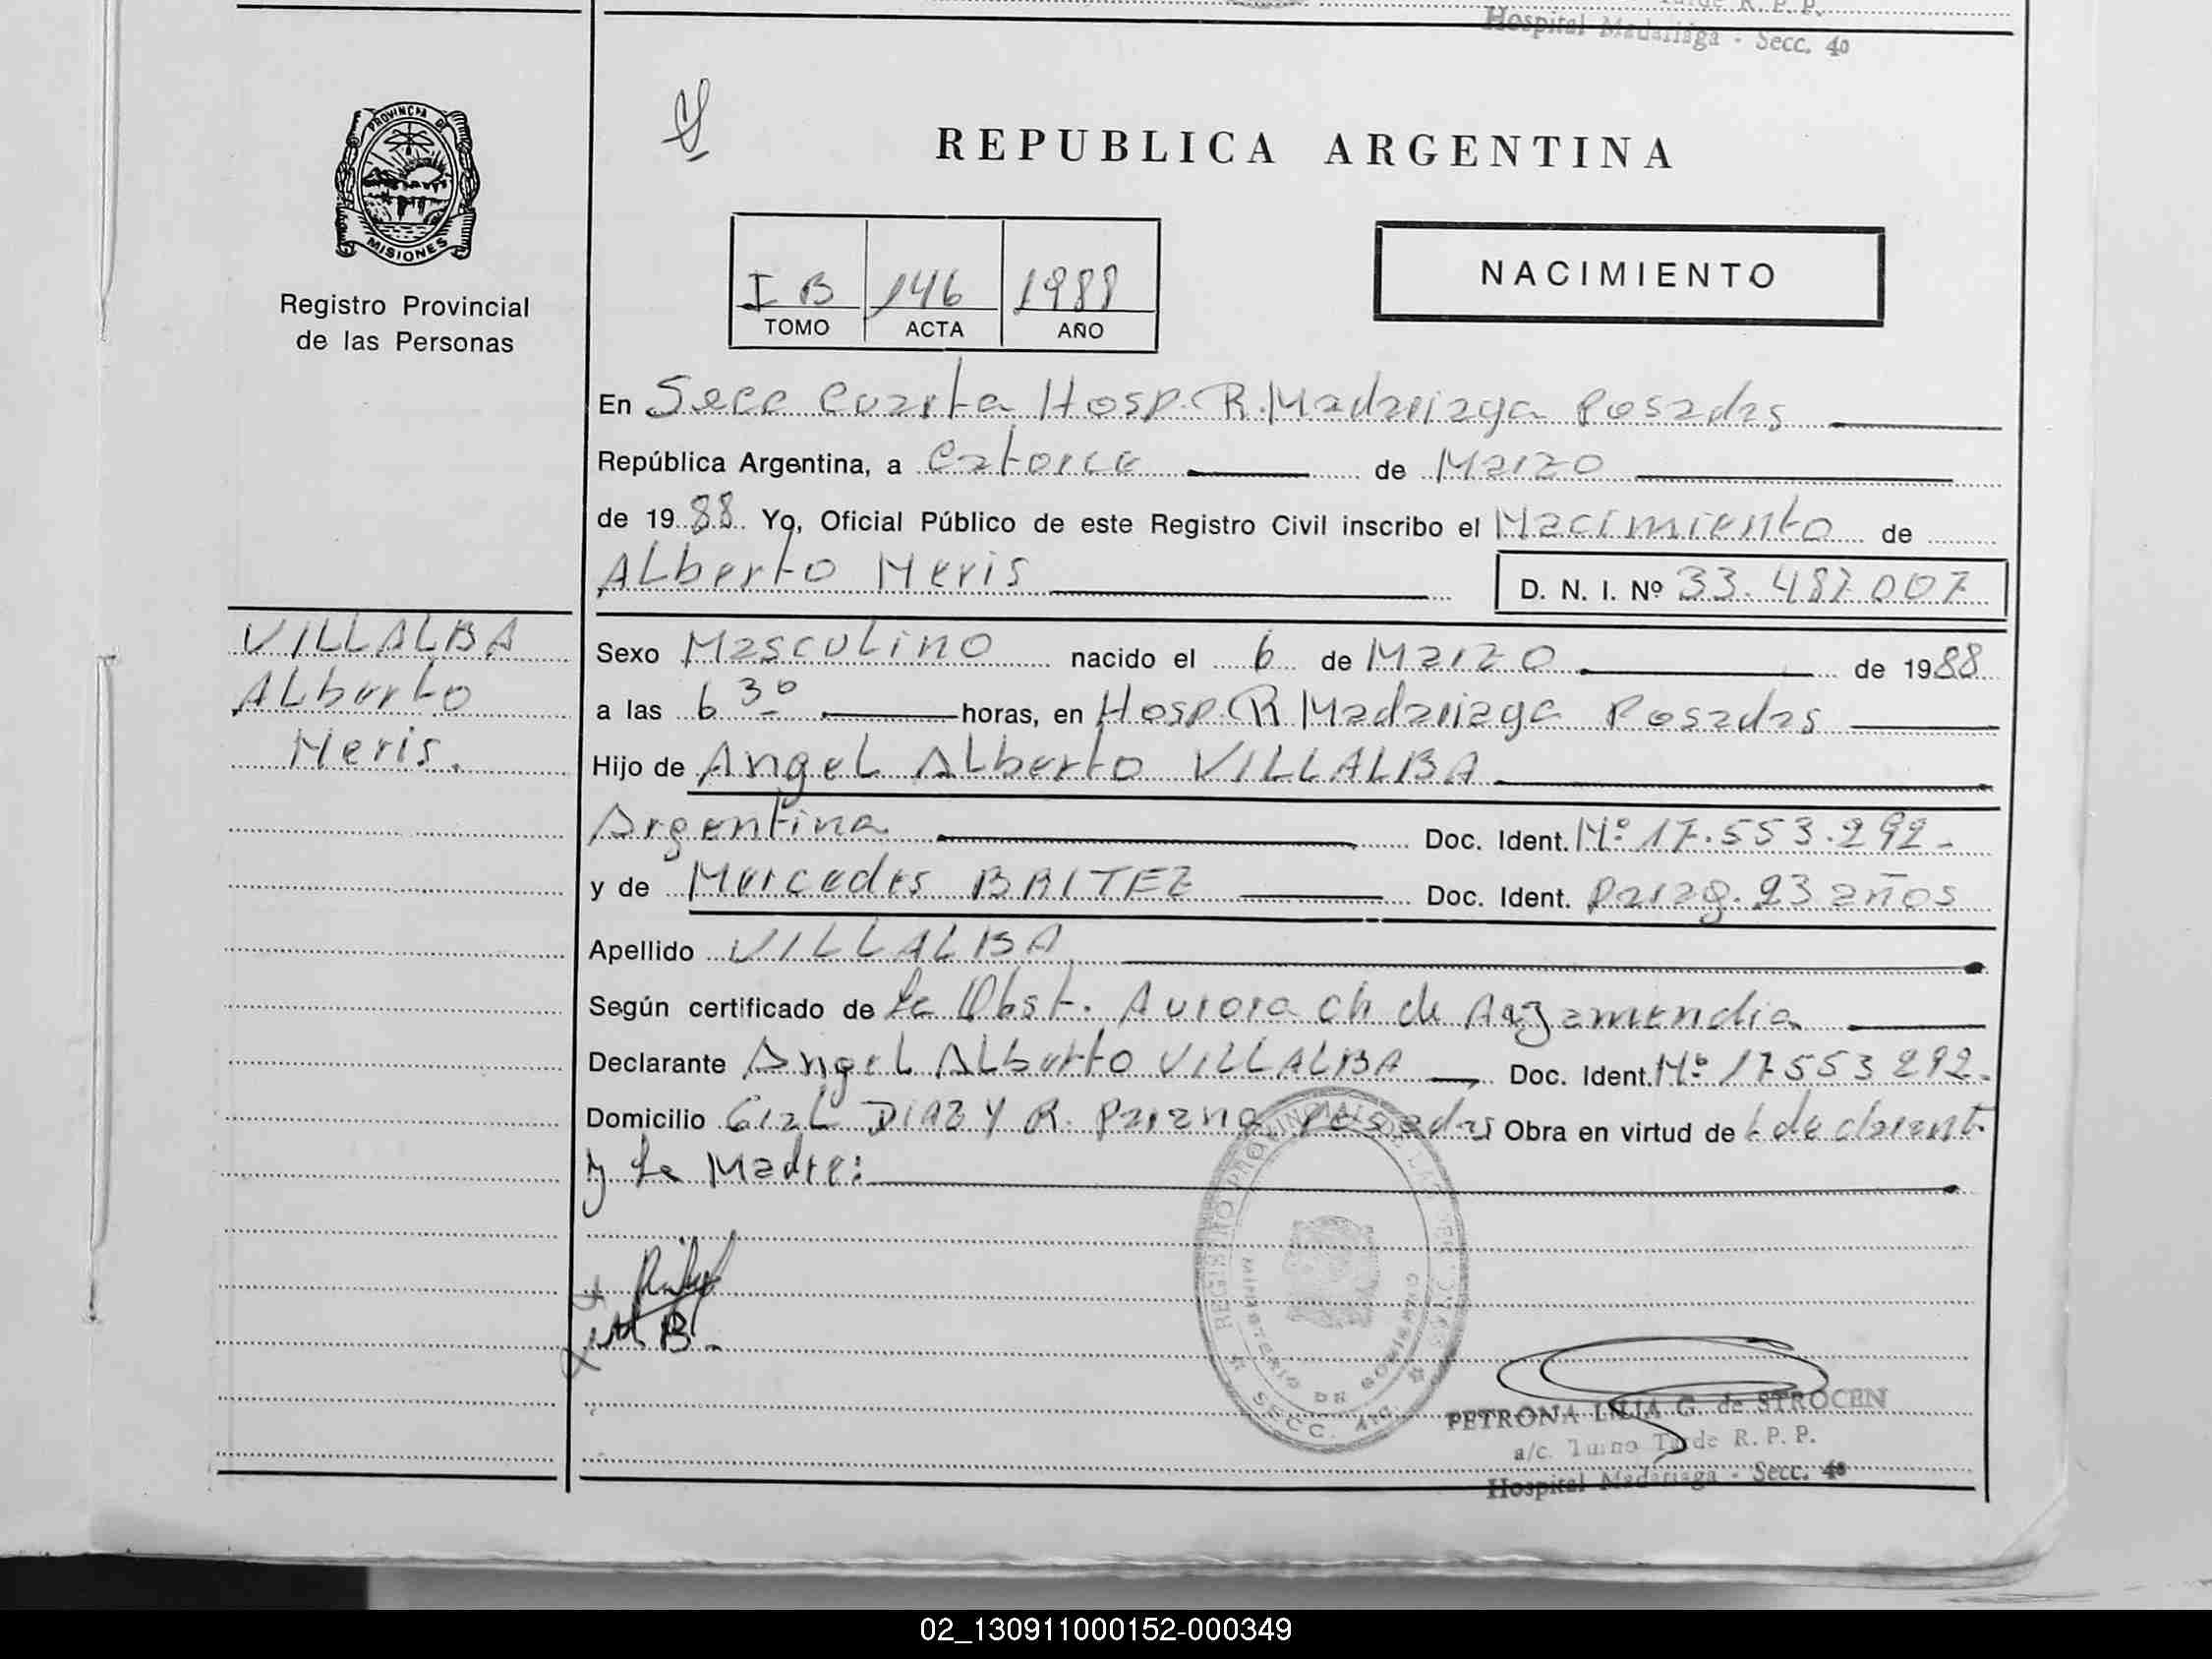 Tarde R. P. P.
Hospital Madariaga - Secc. 4º
PROVINCIA DE
MISIONES
Registro Provincial
de las Personas
REPUBLICA ARGENTINA
I B 146 1988
TOMO ACTA AÑO
NACIMIENTO
En Secc Cuarta Hosp. R. Madariaga Posadas
República Argentina, a Catorce de Marzo
de 1988 Yo, Oficial Público de este Registro Civil inscribo el Nacimiento de
Alberto Neris
D. N. I. Nº 33.487.007
VILLALBA
Alberto
Neris.
Sexo Masculino nacido el 6 de Marzo de 1988
a las 6 30 horas, en Hosp. R Madariaga Posadas
Hijo de Angel Alberto VILLALBA
Argentina Doc. Ident. Nº 17.553.292-
y de Mercedes BRITEZ Doc. Ident. Parag. 23 años
Apellido VILLALBA
Según certificado de la Obst. Aurora Ch de
Declarante Angel Alberto VILLALBA Doc. Ident. Nº 17553292-
Domicilio Gral DIAZ Y R. Parana Posadas Obra en virtud de declarant.
y la Madre:
M B.
REGISTRO PROVINCIAL DE LAS PERSONAS
MINISTERIO DE GOBIERNO
SECC. 4ta.
PETRONA LILIA G. de STROCEN
a/c. Turno Tarde R. P. P.
Hospital Madariaga - Secc. 4º
02_130911000152-000349